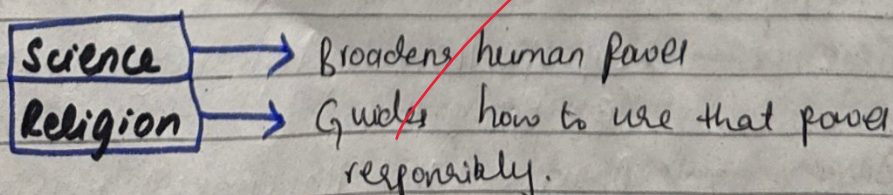 Science → Broadens human power
Religion → Guides how to use that power
responsibly.